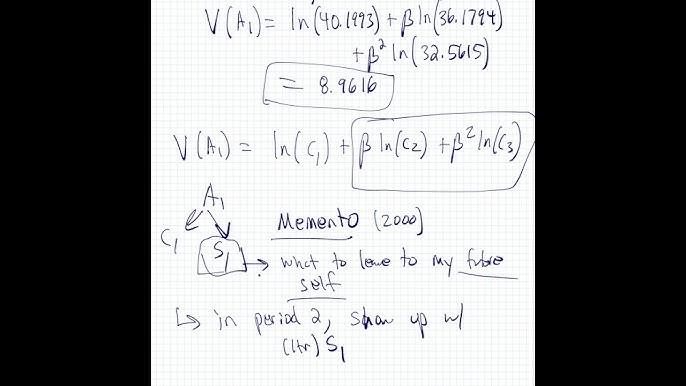 V(A₁) = ln(40.1993) + β ln(36.1794)
+ β² ln(32.5615)
= 8.9616
V(A₁) = ln(C₁) + β ln(C₂) + β² ln(C₃)
A₁
Memento (2000)
C₁ S₁ → what to leave to my future
self
↳ in period 2, show up w/
(1+r) S₁